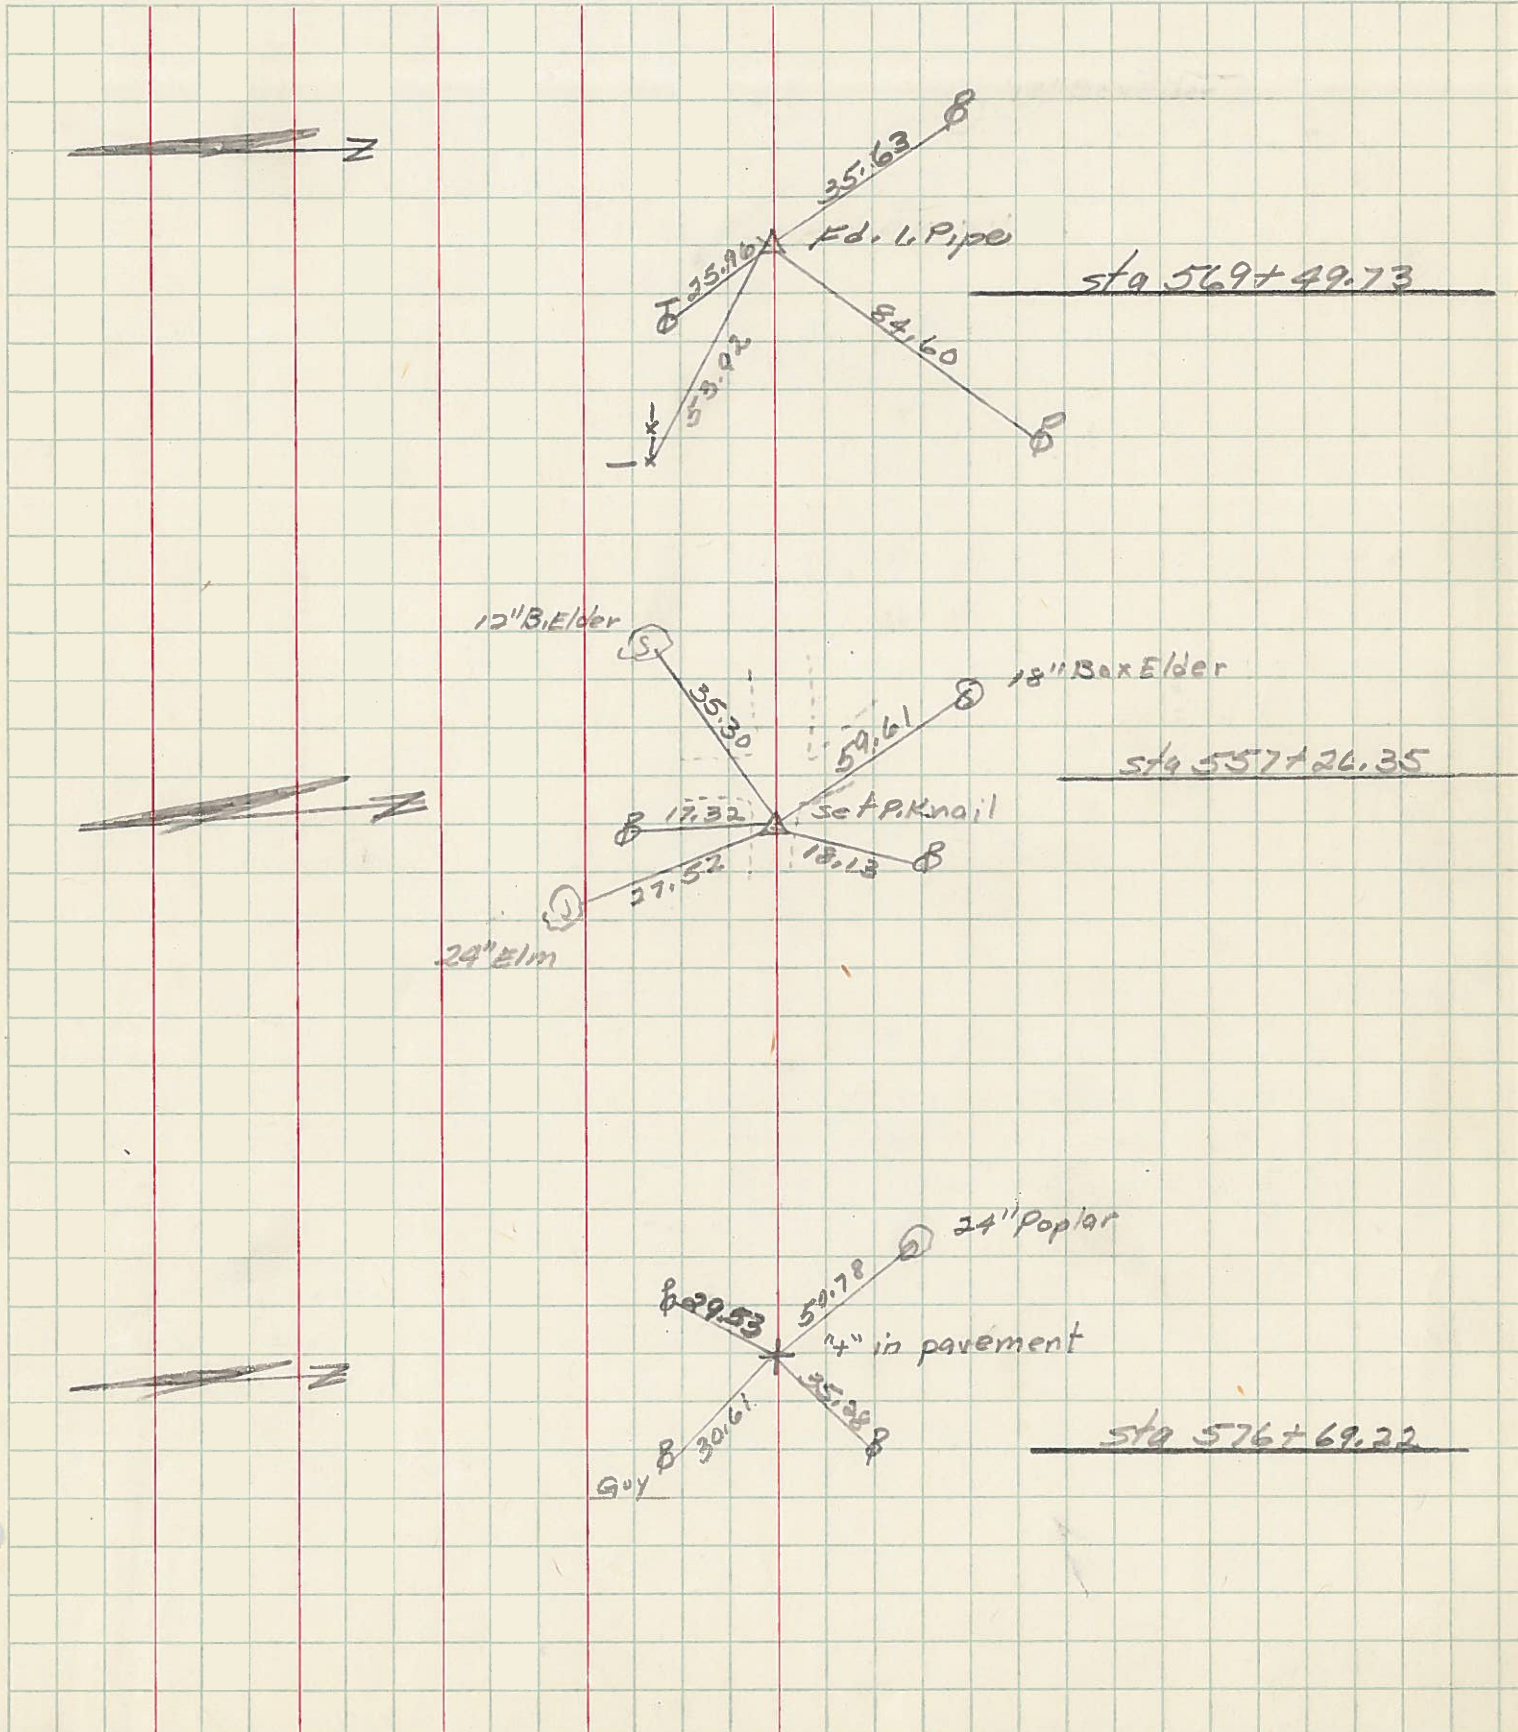 N
35.63
Fd. I. Pipe
25.96
sta 569+49.73
84.60
53.92
12" B. Elder
18" Box Elder
35.30
59.61
sta 557+26.35
N
17.32
set P.K nail
18.13
27.52
24" Elm
24" Poplar
29.53
59.78
"+" in pavement
N
35.28
30.61
sta 576+69.22
Guy